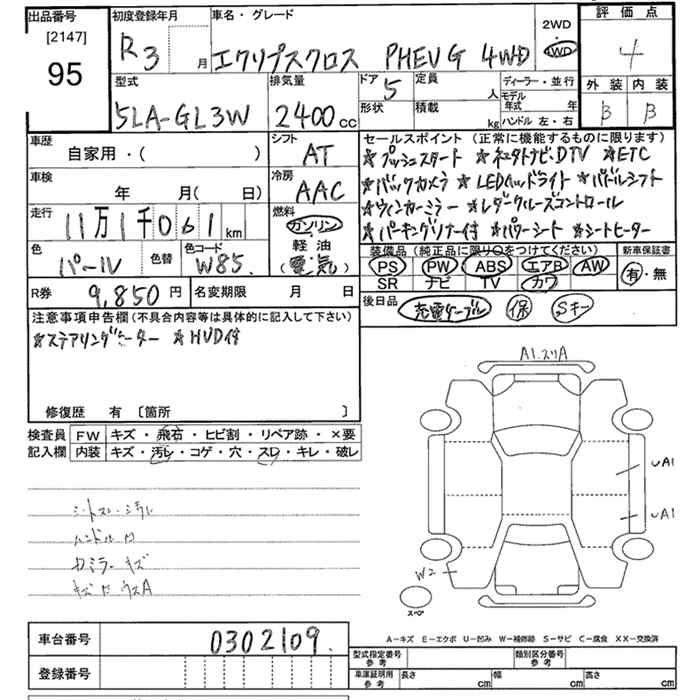 出品番号 初度登録年月 車名・グレード 2WD 評価点
[2147] R3 月 エクリプスクロス PHEV G 4WD 4WD 4
95
型式 排気量 ドア 5 定員 人 ディーラー・並行 外装 内装
5LA-GL3W 2400cc 形状 積載 kg モデル年式 年 B B
ハンドル 左・右
車歴 シフト セールスポイント(正常に機能するものに限ります)
自家用・( ) AT ★プッシュスタート ★ DTV ★ETC
車検 冷房 ★バックカメラ ★LEDヘッドライト ★パドルシフト
年 月(日) AAC ★ウィンカーミラー ★レーダークルーズコントロール
走行 11万1千061km 燃料 ガソリン ★パーキングソナー付 ★パワーシート ★シートヒーター
軽油
色 色替 色コード (電気) 装備品(純正品に限り〇をつけてください) 新車保証書
パール W85. PS PW ABS エアB AW 有・無
SR ナビ TV カワ
R券 9,850円 名変期限 月 日 後日品 充電ケーブル 保 Sキー
注意事項申告欄(不具合内容等は具体的に記入して下さい)
★ステアリングヒーター ★HUD付
A1.スリA
修復歴 有 [箇所 ]
検査員 FW キズ・飛石・ヒビ割・リペア跡・×要
記入欄 内装 キズ・汚レ・コゲ・穴・スレ・キレ・破レ
UA1
UA1
ハンドル
ミラーキズ
W2
スペア
A-キズ E-エクボ U-凹み W-補修跡 S-サビ C-腐食 XX-交換済
車台番号 0302109.
登録番号
型式指定番号 参考 類別区分番号 参考
車庫証明用 参考 長さ cm 幅 cm 高さ cm